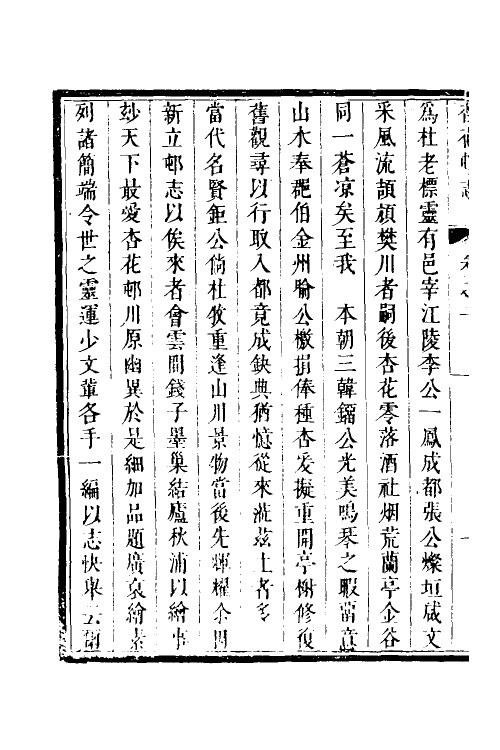 爲杜老標靈有邑宰江陵李公一鳳成都張公燦垣咸文
采風流頡頏樊川者嗣後杏花零落酒社烟荒蘭亭金谷
同一蒼凉矣至我　本朝三韓鎦公光美鳴琹之暇留意
山水奉郡伯金州喻公檄捐俸種杏爰擬重開亭榭修復
舊觀尋以行取入都竟成缺典猶憶從來涖兹土者多
當代名賢鉅公倘杜牧重逢山川景物當後先輝耀余因
新立邨志以俟來者會雲間錢子墨巢結廬秋浦以繪事
玅天下最愛杏花邨川原幽異於是細加品題廣裒繪素
列諸簡端令世之靈運少文輩各手一編以志快舉云爾